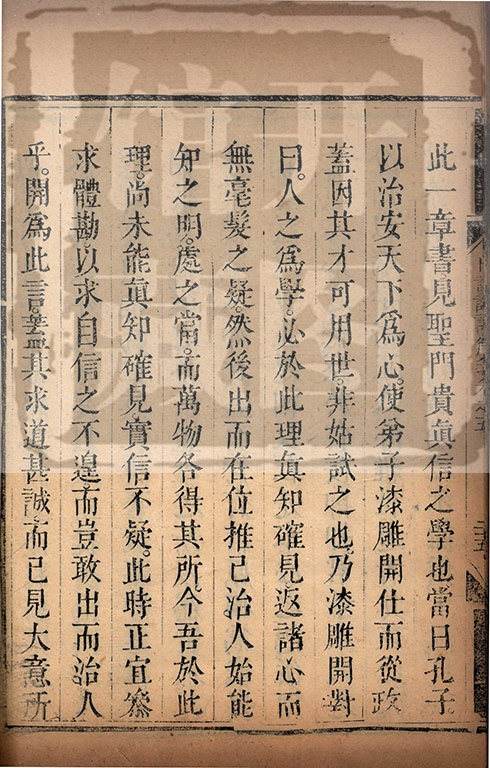 此一章書見聖門貴眞信之學也當日孔子
以治安天下爲心。使弟子漆雕開仕而從政
蓋因其才可用世。非姑試之也。乃漆雕開對
曰。人之爲學。必於此理眞知確見返諸心而
無毫髮之疑。然後出而在位推己治人始能
知之明。處之當。而萬物各得其所。今吾於此
理。尚未能眞知確見實信不疑。此時正宜察
求體勘。以求自信之不遑。而豈敢出而治人
乎。開爲此言。蓋其求道甚誠。而已見大意所